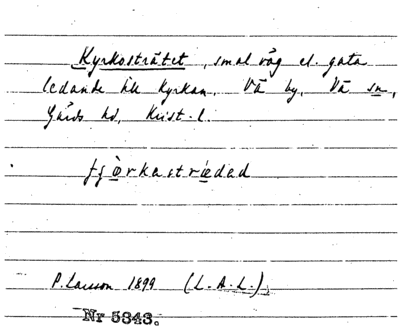 Kyrkosträtet, smal väg el. gata
ledande till kyrkan. Vä by, Vä sn,
Gärds hd, Krist. l.
fjørkastrædad
P. Larsson 1899 (L.A.L.)
Nr 5343.